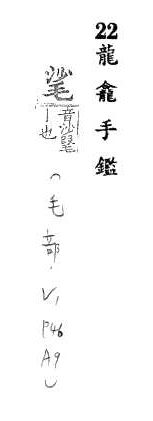 22龍龕手鑑
音沙毛
丨也
(毛部,V,P46A9)